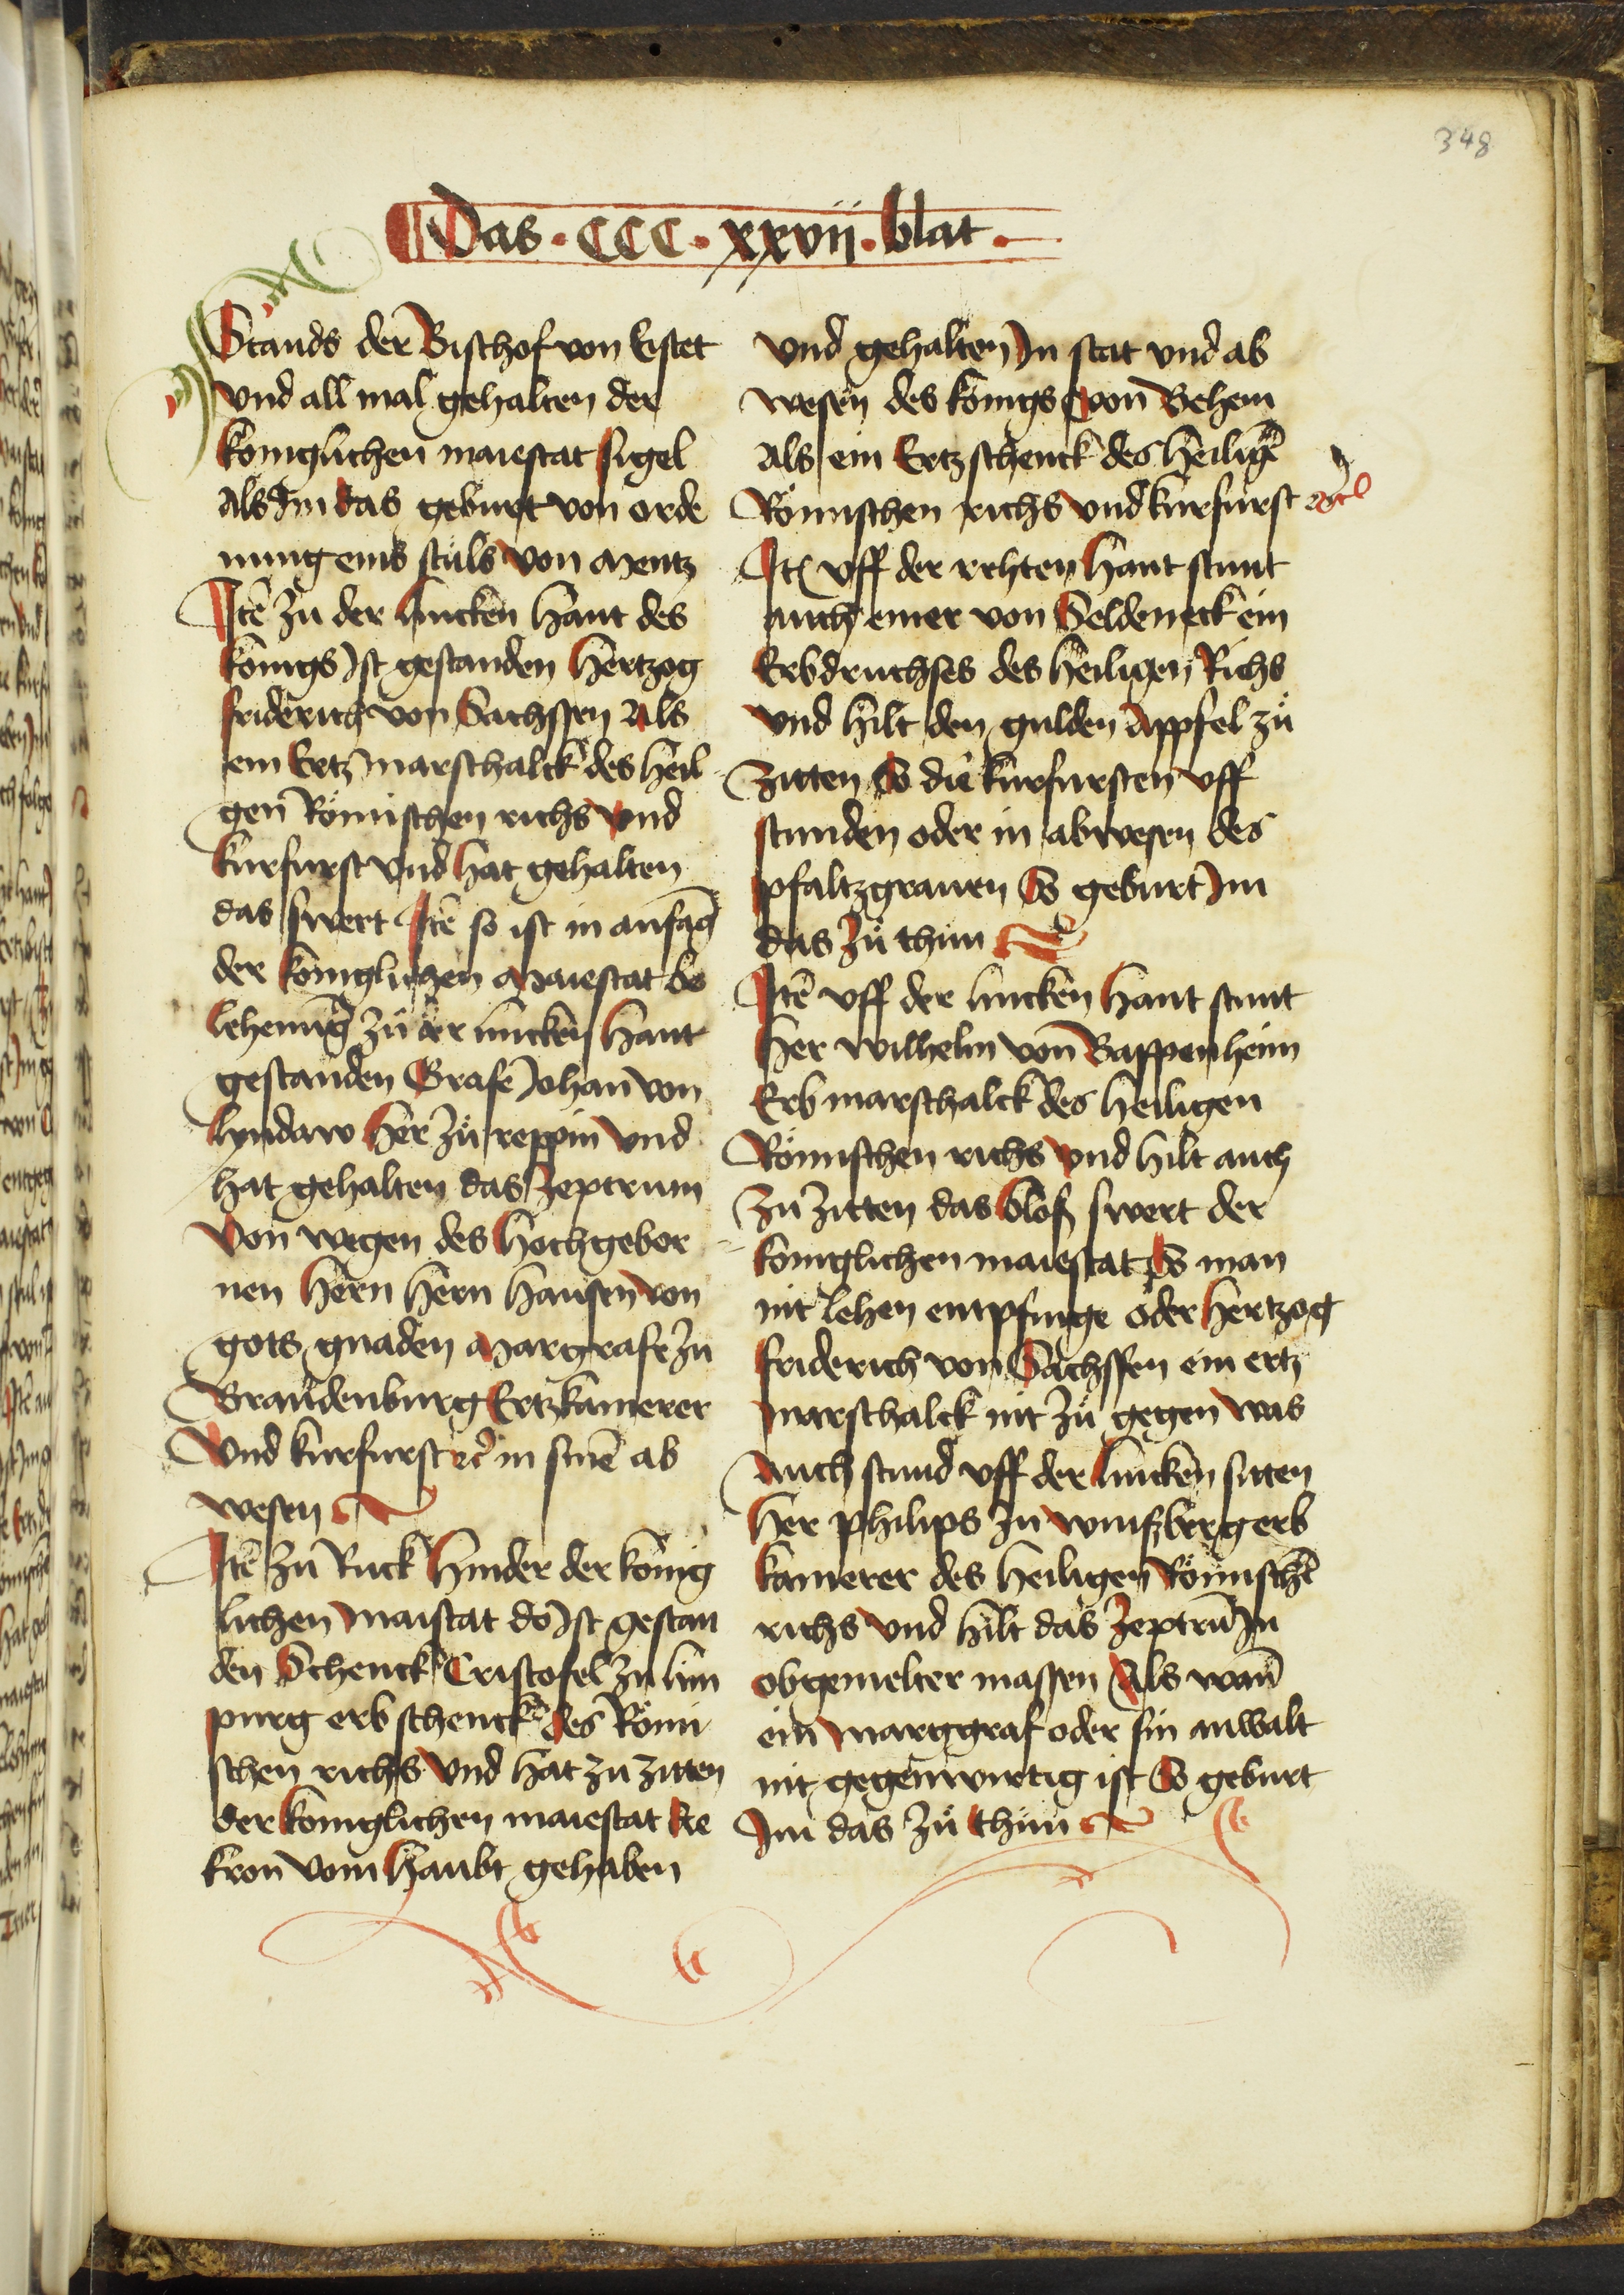 348
Das · CCC · xxvij · blat ·
Stands der Bischof von Eistet
vnd all mal gehalten der
koniglichen maiestat sigel
Als Im das geburt von orde
nung eins stuls von Mentz
Itē zu der lincken hant des
konigs Ist gestanden Hertzog
friderich von Sachssen Als
ein Ertzmarschalck des heil
gen Römischen richs vnd
kurfurst vnd hat gehalten
das swert Itē so ist in anfāg
der koniglichen Maiestat be
lehenūg zu der lincken hant
gestanden Grafe Johan von
lyndaw Her zu reppin vnd
hat gehalten das Zeptrum
von wegen des Hochgebor
nen Hern Hern Hansen von
gots gnaden Margrafe zu
Brandenburg Ertzkamerer
vnd kurfurst ꝛc̄ in sinē ab
wesen
Itē zu Ruck hinder der konig
lichen Maistat do Ist gestan
den Schenck Cristofel zu lim
purg erbschenck des Römi
schen richs vnd hat zu zitten
der koniglichen maiestat die
kron vom haubt gehaben
vnd gehalten In stat vnd ab
wesen des konigs von Behem
Als ein Ertzschenck des heiligē
Römischen richs vnd kurfurst ꝛc̄
Itē vff der rehten hant stunt
auch einer von Seldeneck ein
Erbdruchses des heiligen Richs
vnd hilt den gulden Appfel zu
zitten So die kurfursten vff
stunden oder in abwesen des
pfaltzgrauen So geburt Im
das zu thun
Itē vff der lincken hant stunt
Her wilhelm von Bappenheim
Erbmarschalck des heiligen
Römischen richs vnd hilt auch
zu zitten das bloß swert der
koniglichen maiestat So man
nit lehen entpfinge oder Hertzog
friderich von Sachssen ein ertz
marschalck nit zu gegen was
Auch stund vff der lincken sitten
Her philips zu winßberg erb
kamerer des heiligen Römischē
richs vnd hilt das Zeptrū In
obgemelter massen Als wañ
ein Marggraf oder sin anwalt
nit gegenwurtig ist So geburt
Im das zu thun